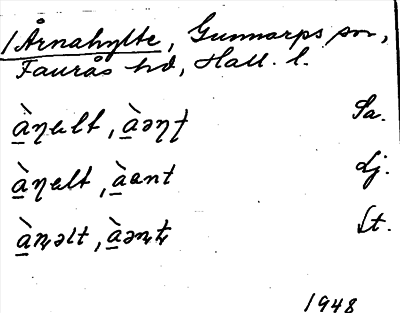 /Årnahylte, Gunnarps sn,
Faurås hd, Hall. l.
à̠ꞑult, à̠əꞑt Sa.
à̠ꞑult, à̠ant dj.
à̠ꞑəlt, à̠əꞑt St.
1948